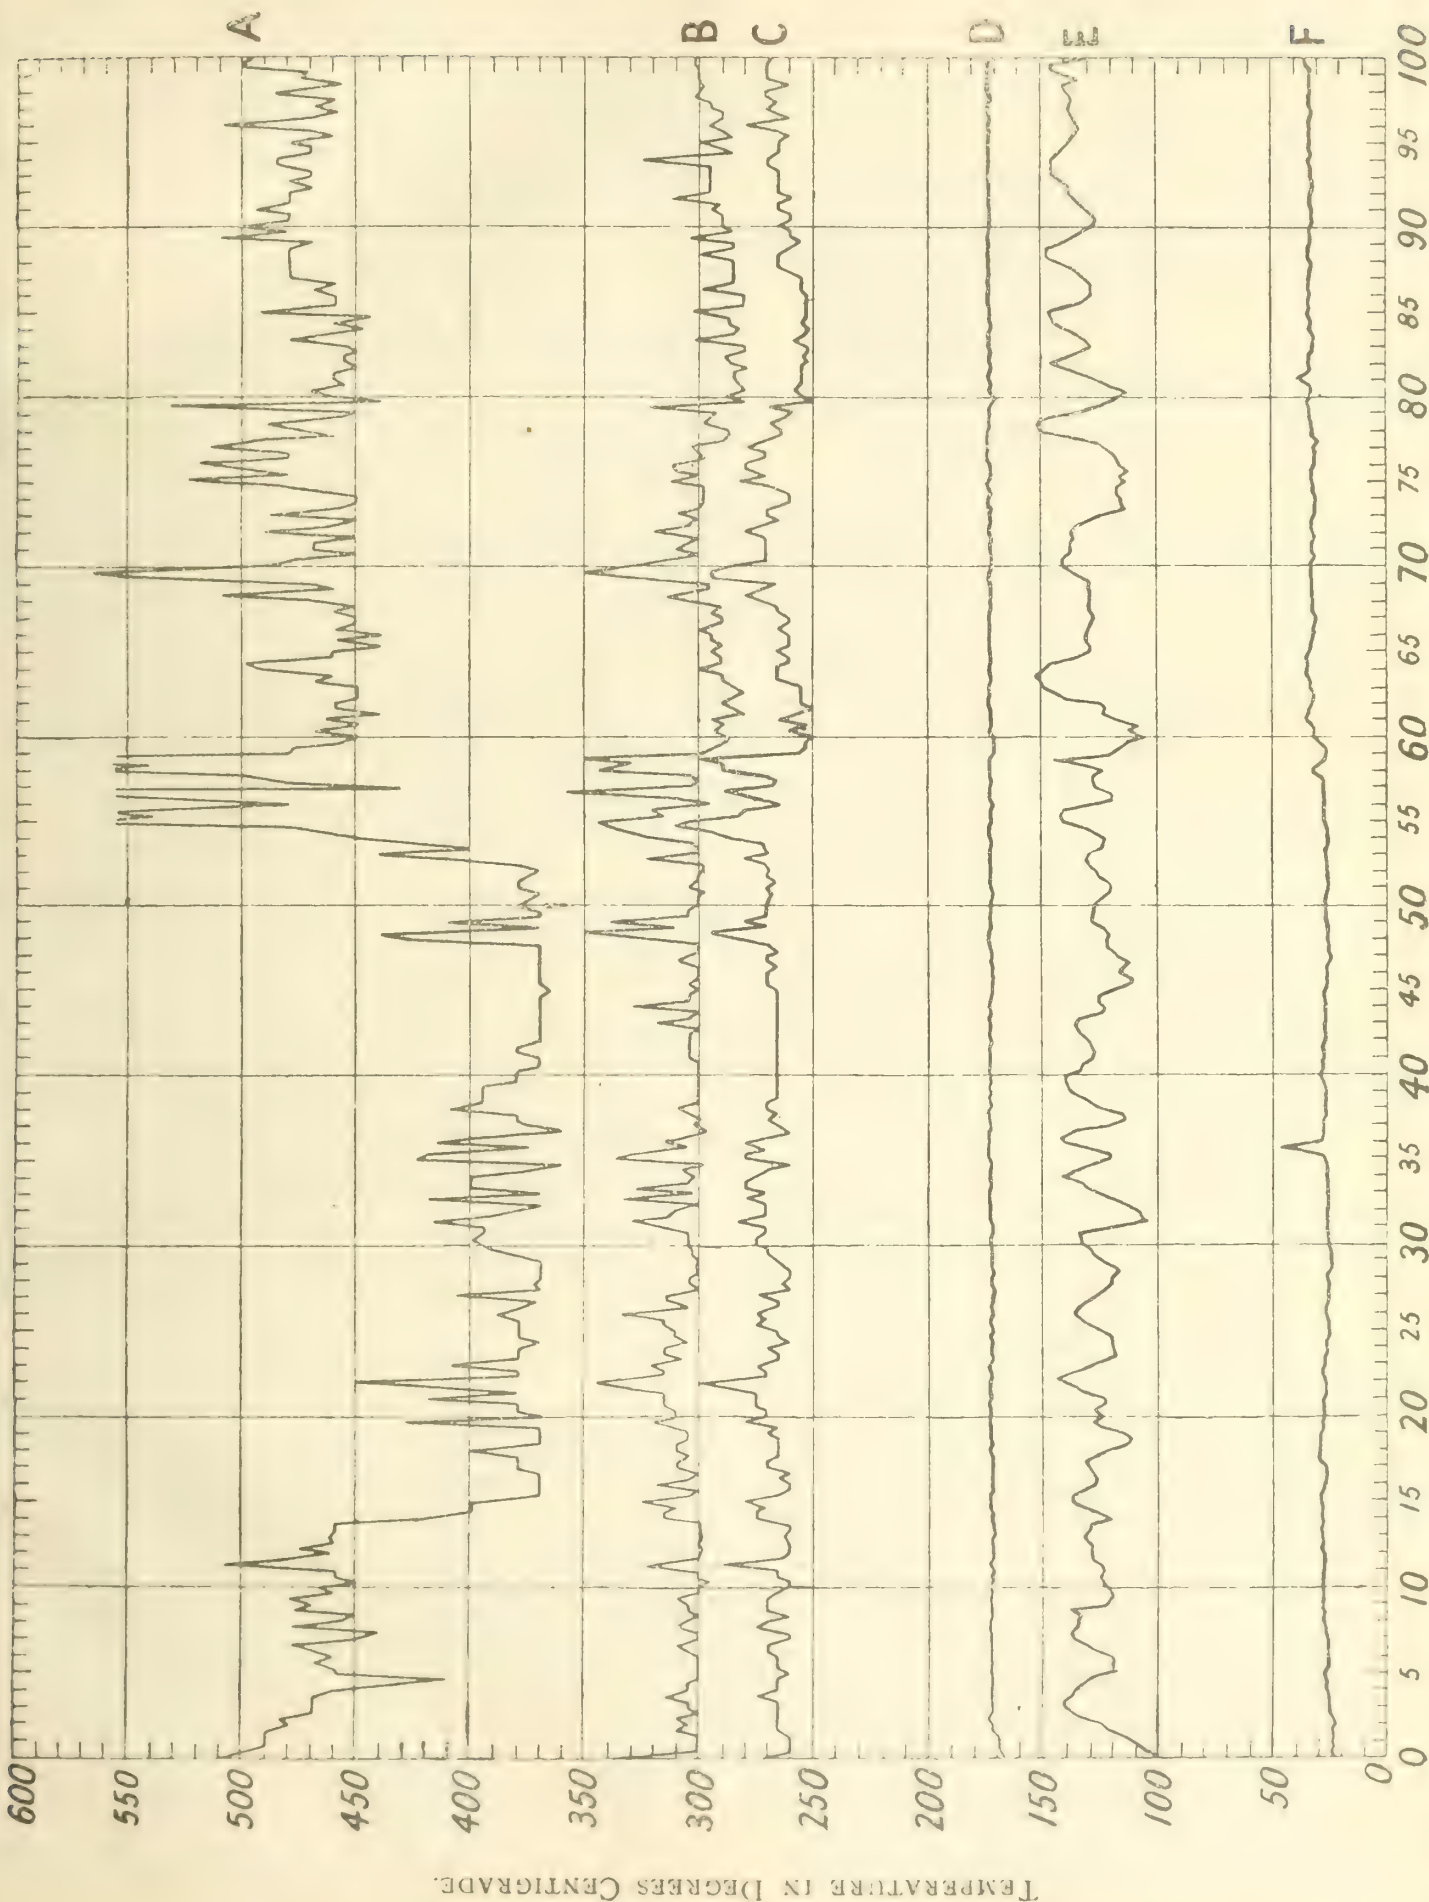 A
B
C
D
E
F
600
550
500
450
400
350
300
250
200
150
100
50
0
0
5
10
15
20
25
30
35
40
45
50
55
60
65
70
75
80
85
90
95
100
TEMPERATURE IN DEGREES CENTIGRADE.